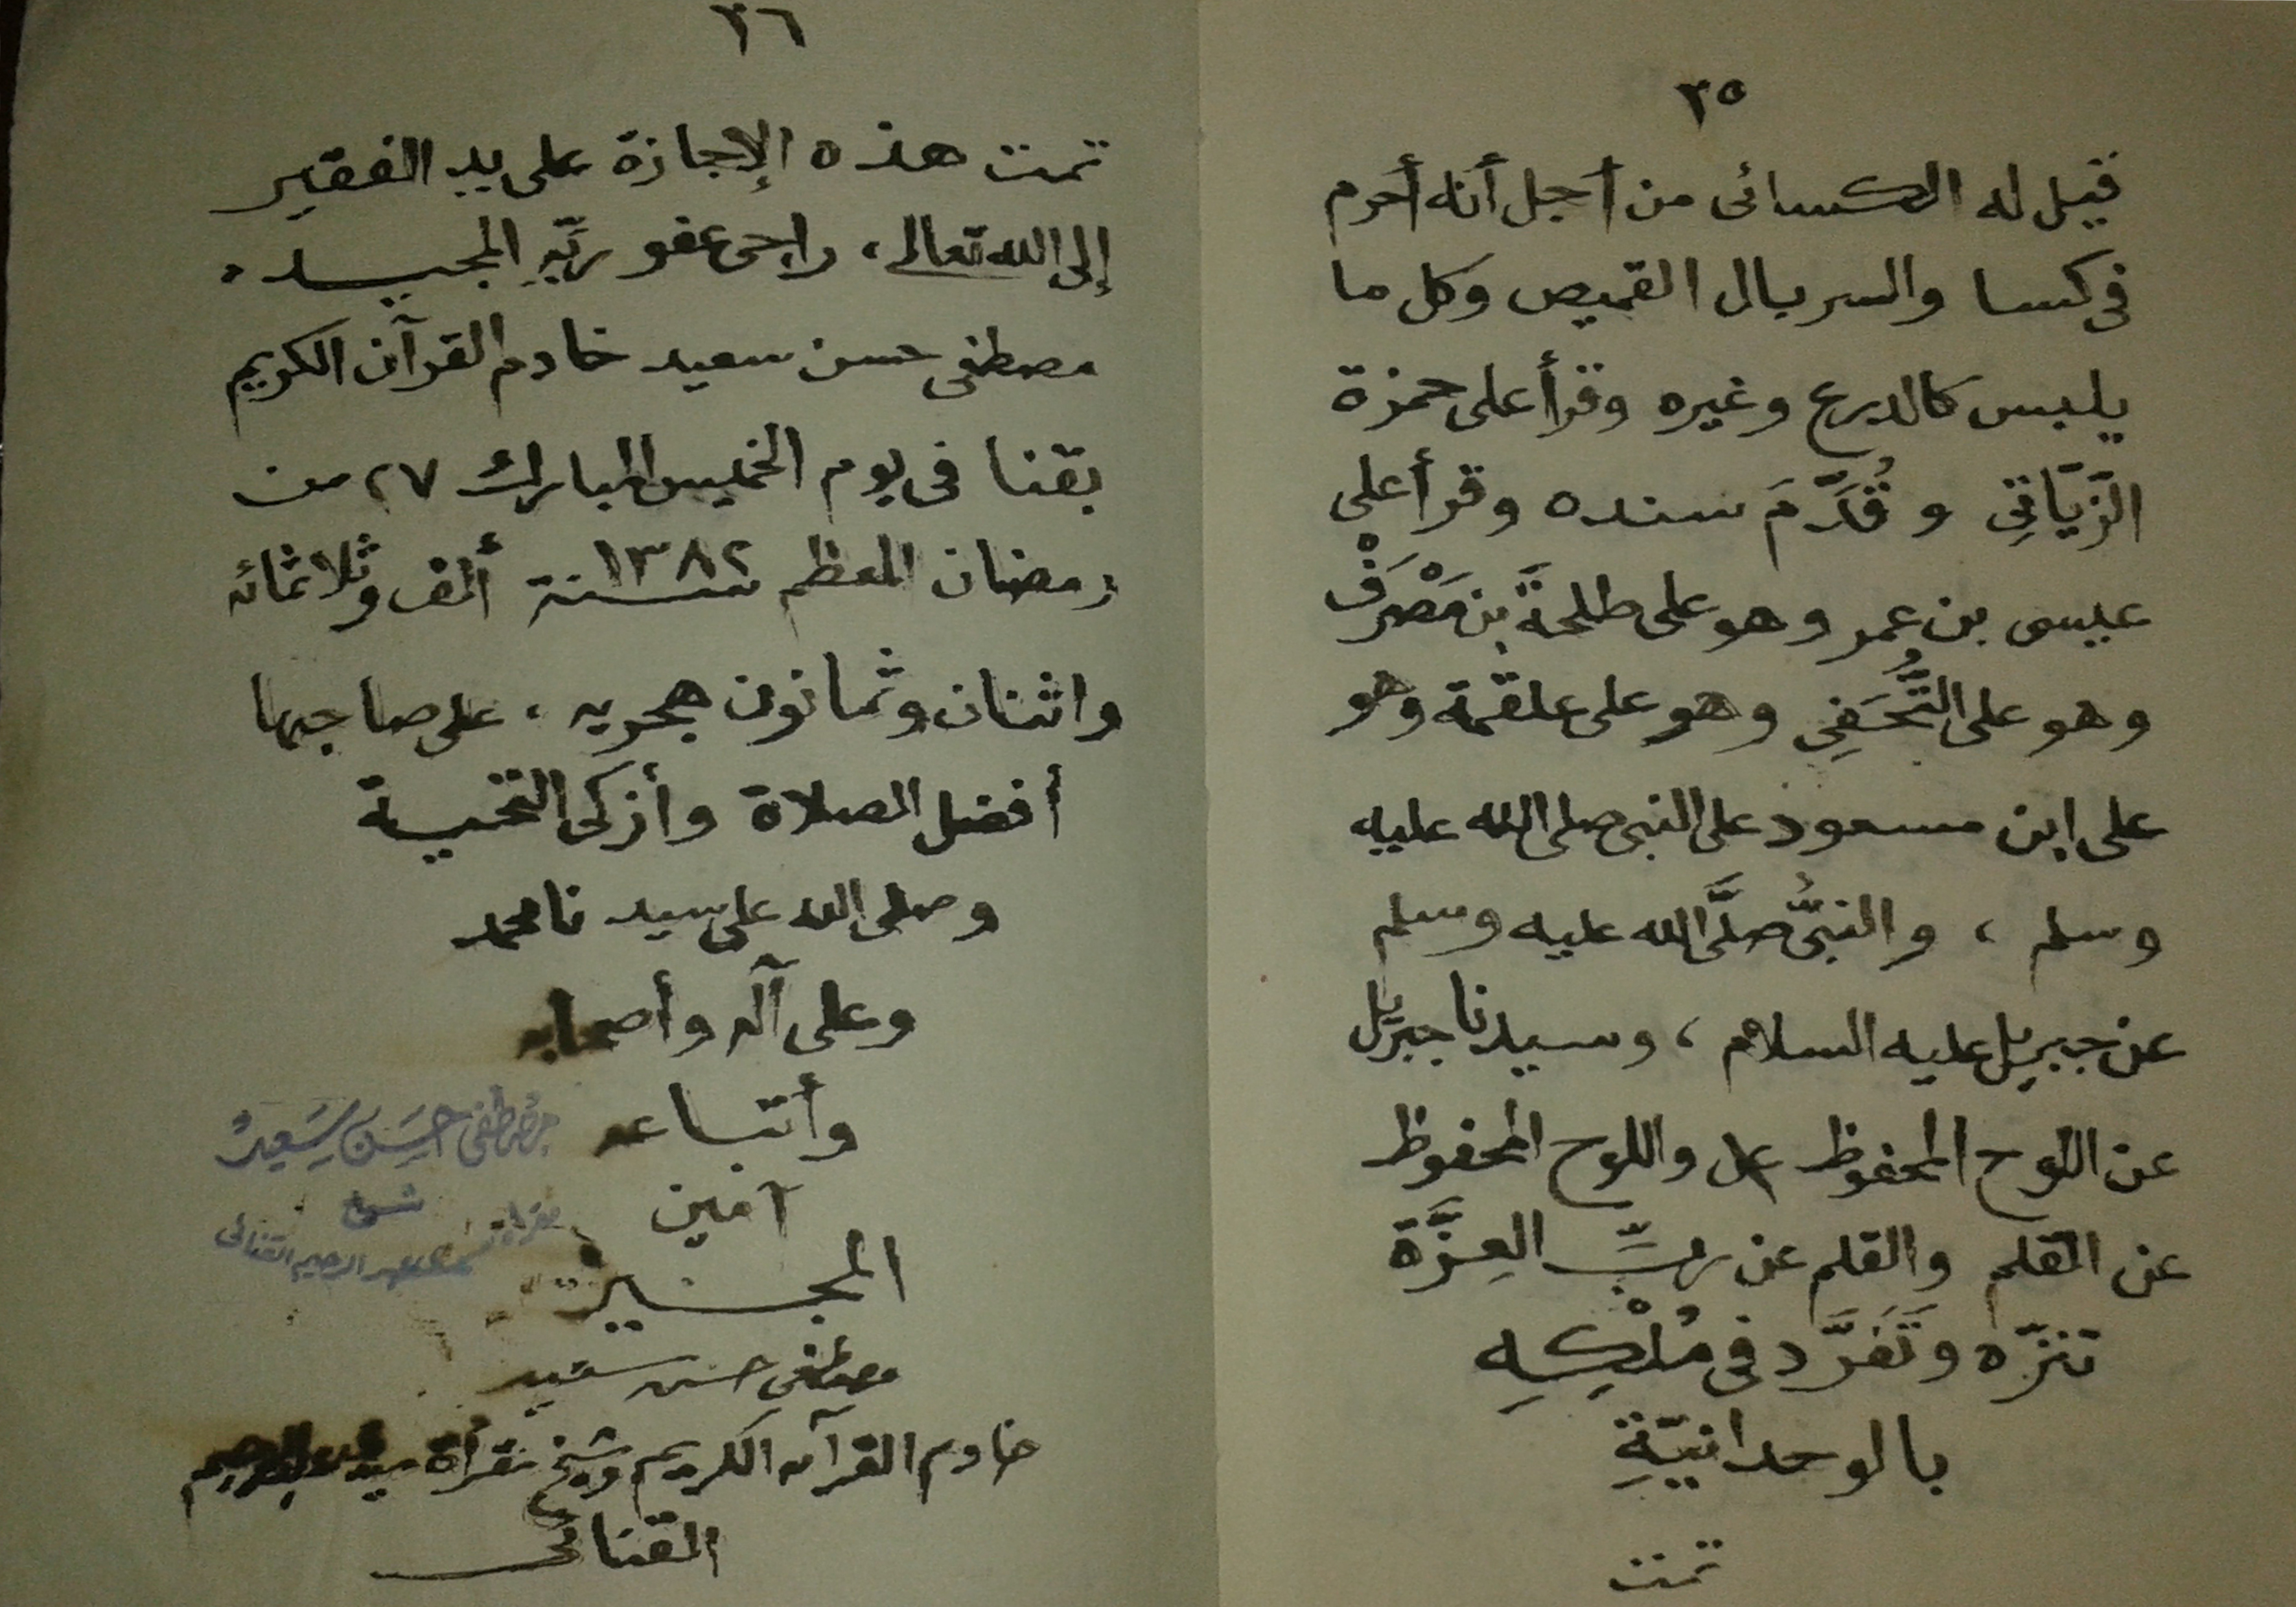 ٢٥
قيل له الكسائى من أجل أنه أحرم
فى كسا والسربال القميص وكل ما
يلبس كالدرع وغيره وقرأ على حمزة
الزّيّاتِ وقُدّمَ سنده وقرأ على
عيسى بن عمر وهو على طلحةَ بن مَصْرَفْ
وهو على النَّخَفِى وهو على علقمة وهو
على ابن مسعود على النبى صلى الله عليه
وسلم ، والنبىُّ صلَّى الله عليه وسلم
عن جبريل عليه السلام ، وسيدنا جبريل
عن اللوح المحفوظ واللوح المحفوظ
عن القلم والقلم عن ربِّ العِزَّة
تنزّه وَتَفَرَّد فى مُلْكِهِ
بالوحدانيّةِ
تمت
٢٦
تمت هذه الإجازة على يد الفقير
إلى الله تعالى ، راجى عفو ربِّهِ المجيد ،
مصطفى حسن سعيد خادم القرآن الكريم
بقنا فى يوم الخميس المبارك ٢٧ من
رمضان المعظم سنة ١٣٨٢ ألف وثلاثمائه
واثنان وثمانون هجريه ، على صاحبها
أفضل الصلاة وأزكى التحية
وصلى الله على سيدنا محمد
وعلى آله وأصحابه
وأتباعه
آمين
مصطفى حسن سعيد
شيخ
مقرأة سيدى عبد الرحيم القنائى
المجيز
مصطفى حسن سعيد
خادم القرآن الكريم وشيخ مقرأة سيدى عبد الرحيم
القنائى